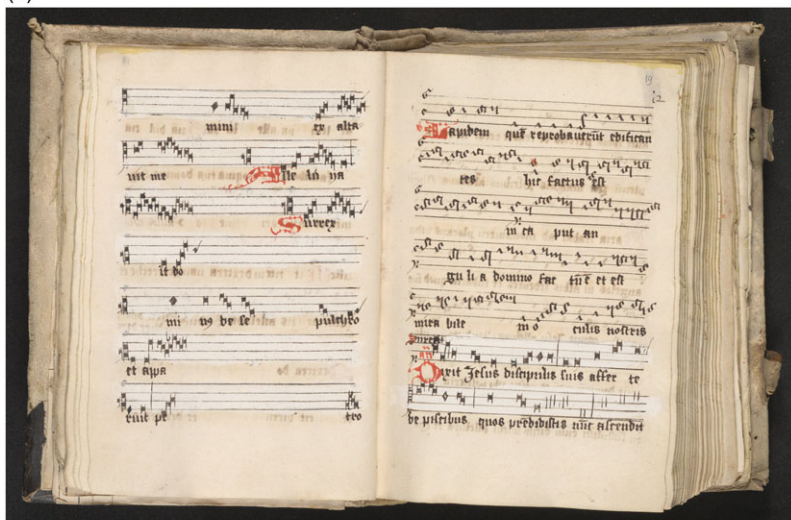 mini ex alta
uit me Alle lu ya
Surrex
it do
mi nus de se pulchro
et apa
ruit pe tro
19
12
Lapidem quē reprobauerūt edifican
tes hic factus est
in ca put an
gu li a domino fac tū ē et est
mira bile in o culis nostris
Dixit Jesus discipulis suis affer te
de piscibus quos prēdidistis nūc ascendit